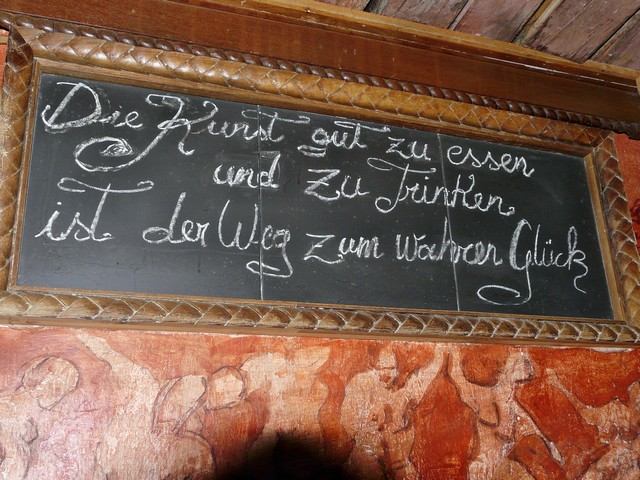 Die Kunst gut zu essen
und zu Trinken
ist der Weg zum wahren Glück